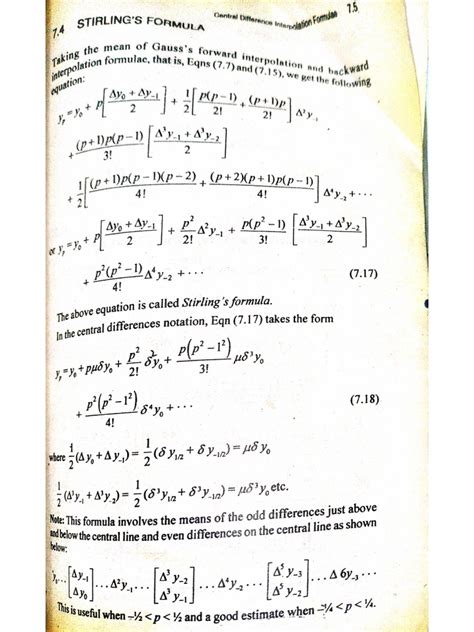 Central Difference Interpolation Formulae 7.5
7.4 STIRLING'S FORMULA
Taking the mean of Gauss's forward interpolation and backward
interpolation formulae, that is, Eqns (7.7) and (7.15), we get the following
equation:
y_p = y_0 + p[(Δy_0 + Δy_-1)/2] + 1/2[p(p−1)/2! + (p+1)p/2!]Δ²y_-1
+ (p+1)p(p−1)/3! [(Δ³y_-1 + Δ³y_-2)/2]
+ 1/2[(p+1)p(p−1)(p−2)/4! + (p+2)(p+1)p(p−1)/4!]Δ⁴y_-2 + ···
or y_p = y_0 + p[(Δy_0 + Δy_-1)/2] + p²/2! Δ²y_-1 + p(p²−1)/3! [(Δ³y_-1 + Δ³y_-2)/2]
+ p²(p²−1)/4! Δ⁴y_-2 + ··· (7.17)
The above equation is called Stirling's formula.
In the central differences notation, Eqn (7.17) takes the form
y_p = y_0 + pμδy_0 + p²/2! δ²y_0 + p(p²−1²)/3! μδ³y_0
+ p²(p²−1²)/4! δ⁴y_0 + ··· (7.18)
where 1/2(Δy_0 + Δy_-1) = 1/2(δy_1/2 + δy_-1/2) = μδy_0
1/2(Δ³y_-1 + Δ³y_-2) = 1/2(δ³y_1/2 + δ³y_-1/2) = μδ³y_0 etc.
Note: This formula involves the means of the odd differences just above
and below the central line and even differences on the central line as shown
below:
y_0...[Δy_-1 Δy_0]...Δ²y_-1...[Δ³y_-2 Δ³y_-1]...Δ⁴y_-2...[Δ⁵y_-3 Δ⁵y_-2]...Δ6y_-3···
This is useful when −½ < p < ½ and a good estimate when −¼ < p < ¼.